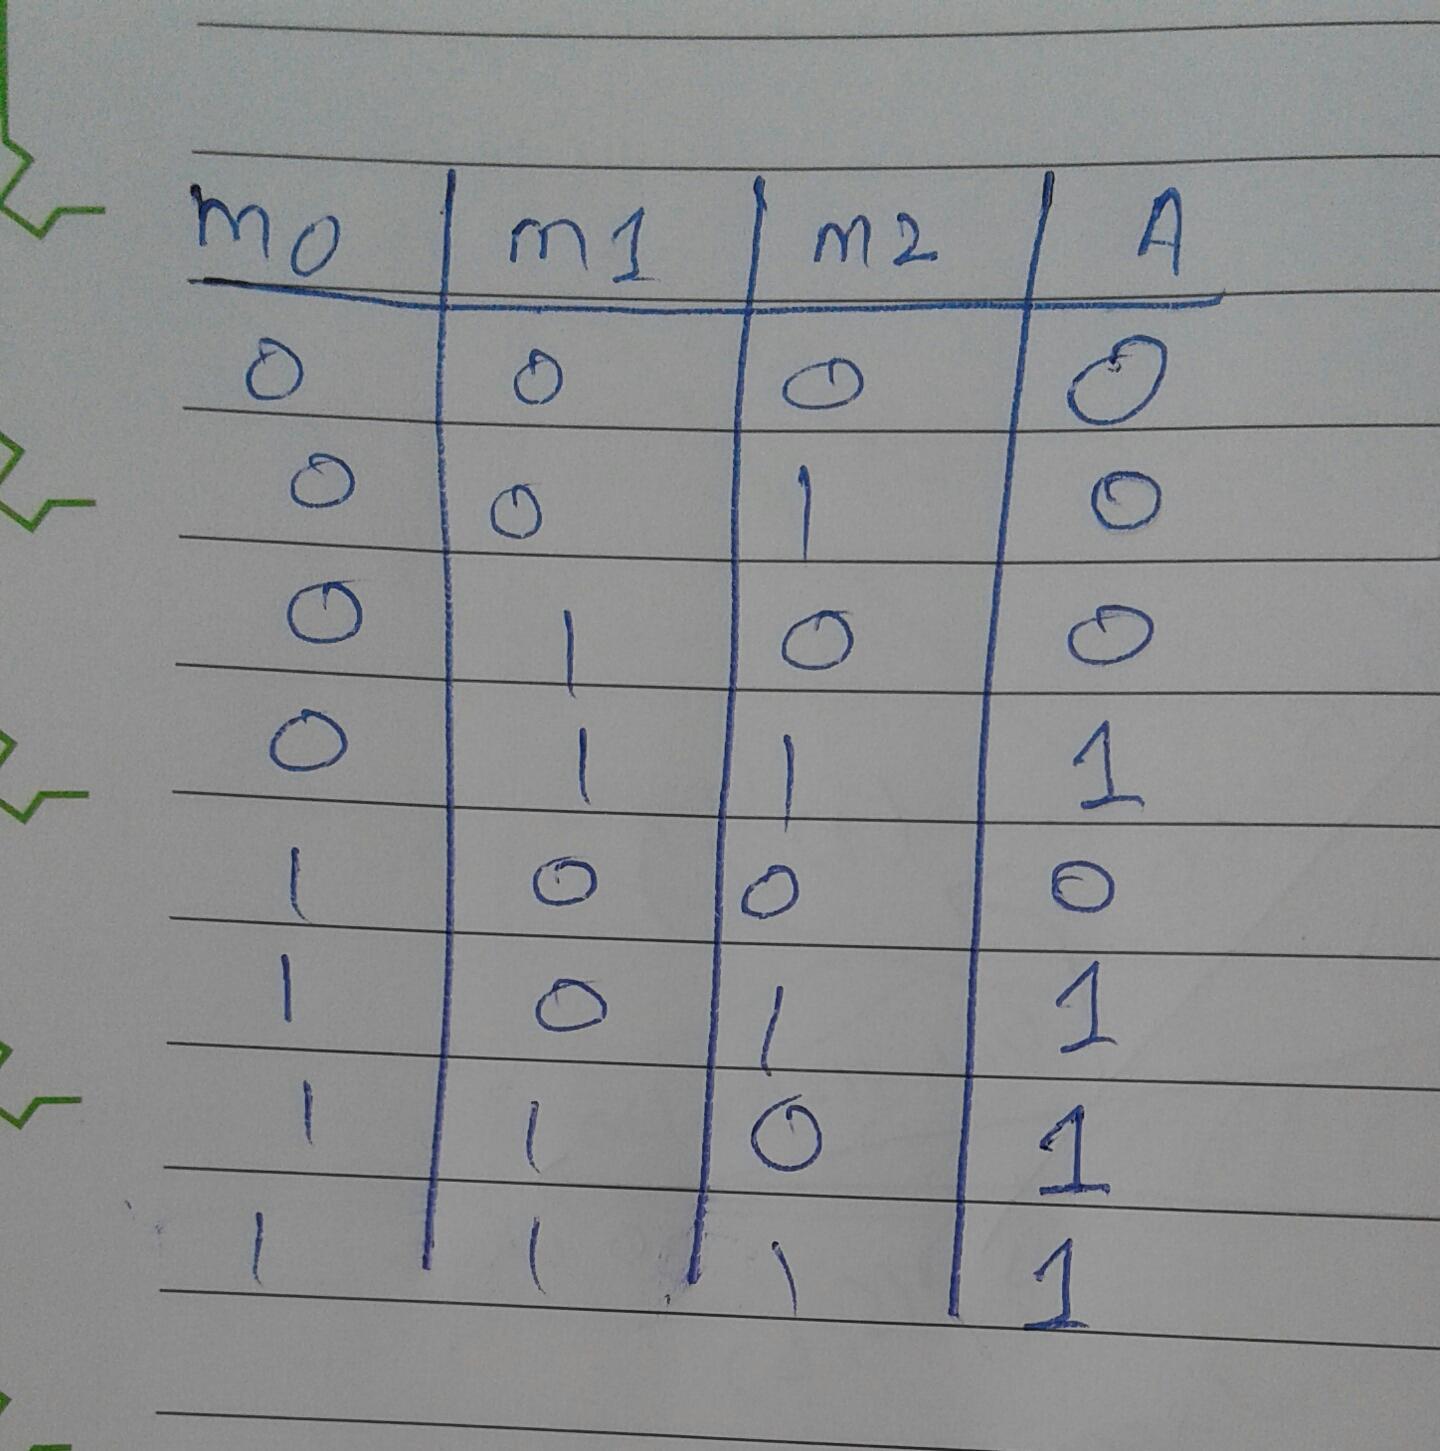 m0 m1 m2 A
0 0 0 0
0 0 1 0
0 1 0 0
0 1 1 1
1 0 0 0
1 0 1 1
1 1 0 1
1 1 1 1